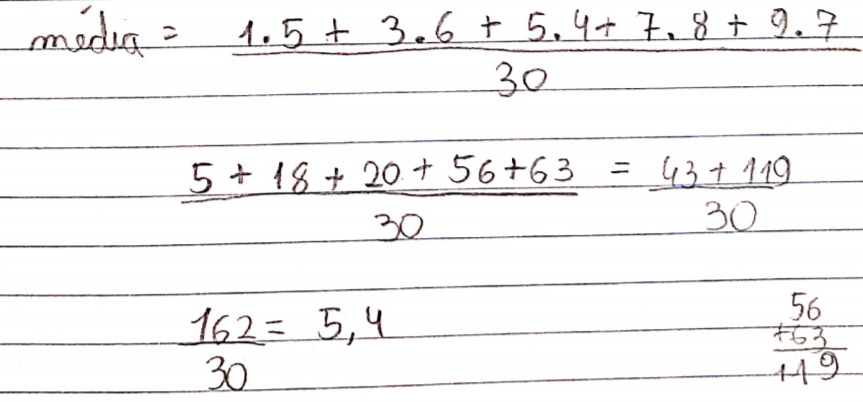 média = 1.5 + 3.6 + 5.4 + 7.8 + 9.7
30
5 + 18 + 20 + 56 + 63 = 43 + 119
30 30
162 = 5,4
30
56
+63
119